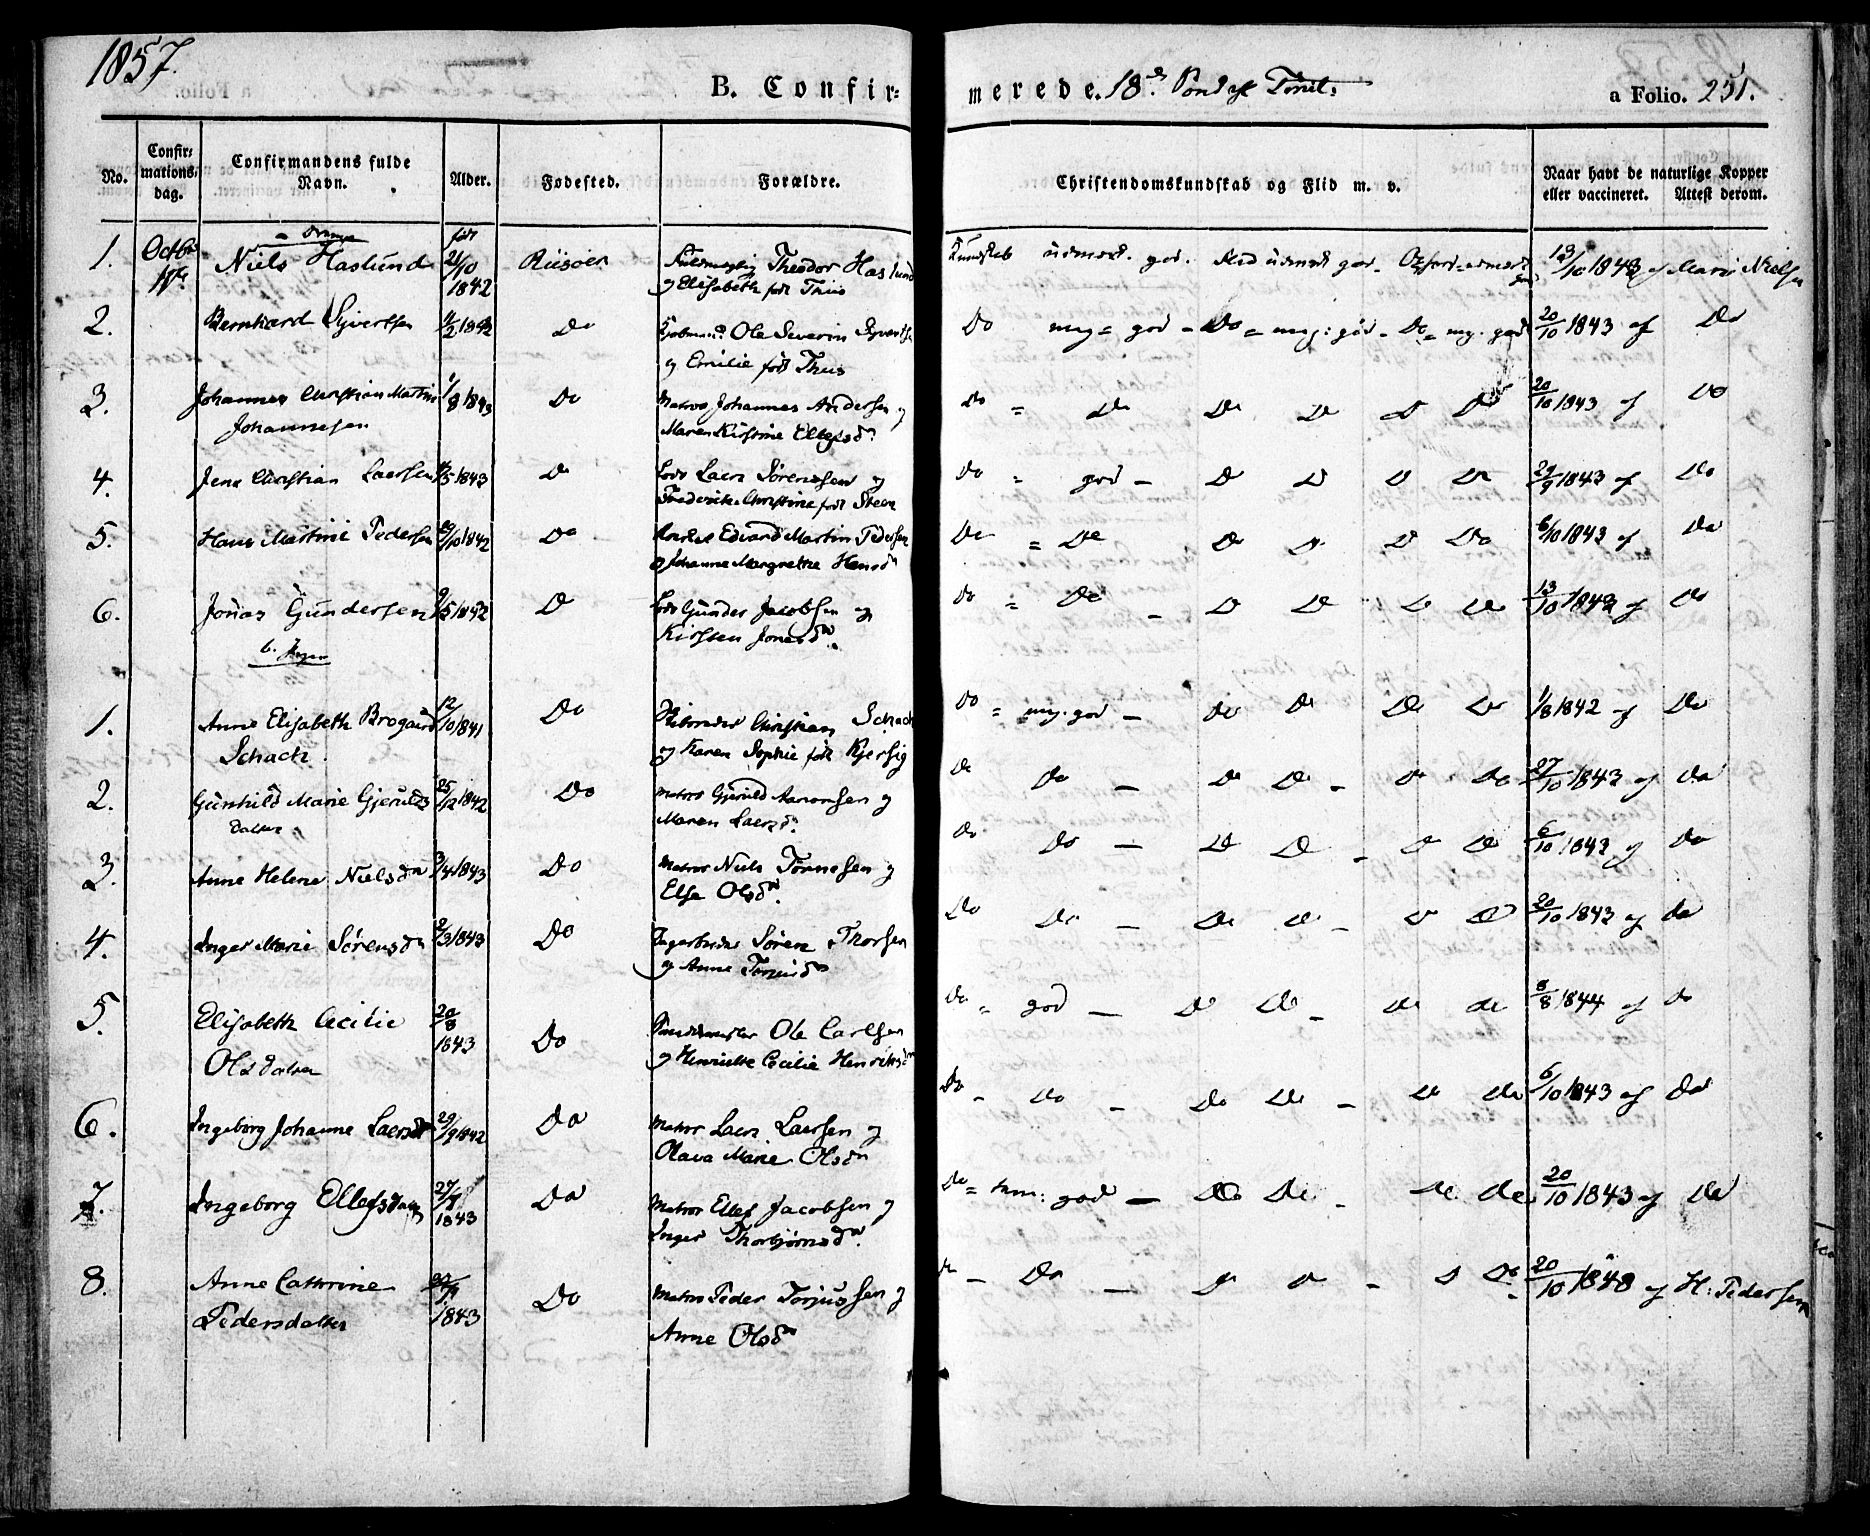 1857.
B. Confir=
merede. 18de Søndag Trinit:
a Folio. 251.
No. Confir= mations= dag. Confirmandens fulde Navn. Alder. Fødested. Forældre. Christendomskundskab og Flid m. v. Naar havt de naturlige Kopper eller vaccineret. Attest derom.
a Drenge født
1. Octbr Niels Haslund 21/10 1842 Risøer Theodor Haslund Kundskab udmærk. god. Flid udmærk god 1843 af Marie Nielsen
og Elisabeth født Thiis
2. Bernhard Syvertsen Do Kjøbmand Ole Severin Syvertsen Do meg = god - Do = meg: god - Do = meg. god 20/10 1843 af Do
og Emilie født Thiis
3. Johannes Christian Martin 1/8 1843 Do Matros Johannes Andersen og Do = Do Do Do Do Do 20/10 1843 af Do
Johannesen Maren Kirstine Ellefsd.
4. Jens Christian Laersen /5 1843 Do Lods Laers Sørensen og Do = god - Do Do Do Do 29/9 1843 af Do
Frederikke Christine født Steen
5. Hans Martini Pedersen /10 1842 Do Edvard Martin Pedersen Do = Do Do Do Do Do 6/10 1843 af Do
og Johanne Margrethe Hansd.
6. Jonas Gundersen Do Lods Gunder Jacobsen og Do = Do - Do Do Do Do 13/10 1843 af Do
Kirsten Jonasd.
b. Piger
1. Anne Elisabeth Brogaard 12/10 1841 Do Christian Schach Do = meg. god - Do Do Do Do 1/8 1842 af Do
Schach. og Karen Sophie født Kjersig
2. Gunhild Marie Gjeruldsdatter 25/12 1842 Do Matros Gjeruld Aanonsen og Do Do - Do Do - Do Do 27/10 1843 af Do
Maren Laersd.
3. Anne Helene Nielsdn 3/4 1843 Do Matros Niels Tønnesen og Do Do - Do Do - Do Do 6/10 1843 af Do
Else Olsd.
4. Inger Marie Sørensdn /3 1843 Do Søren Thorsen Do Do - Do Do - Do Do 20/10 1843 af Do
og Anne
5. Elisabeth Cecilie 20/8 1843 Do Ole Carlsen Do = god - Do Do - Do Do 8/8 1844 af Do
Olsdatter og Henriette Cecilie Henriksdn
6. Ingeborg Johanne Laersdn 29/9 1842 Do Matros Laers Laersen og Do - Do - Do Do - Do Do 6/10 1843 af Do
Olava Marie Olsdn
7. Ingeborg Ellefsdatter 1843 Do Matros Ellef Jacobsen og Do = tem: god - Do Do - Do Do 20/10 1843 af Do
Inger Thorbjørnsdn.
8. Anne Cathrine 1843 Do Matros Peder Torjussen og Do - Do - Do Do - Do Do 20/10 1848 af H: Pedersen
Pedersdatter Anne Olsdn